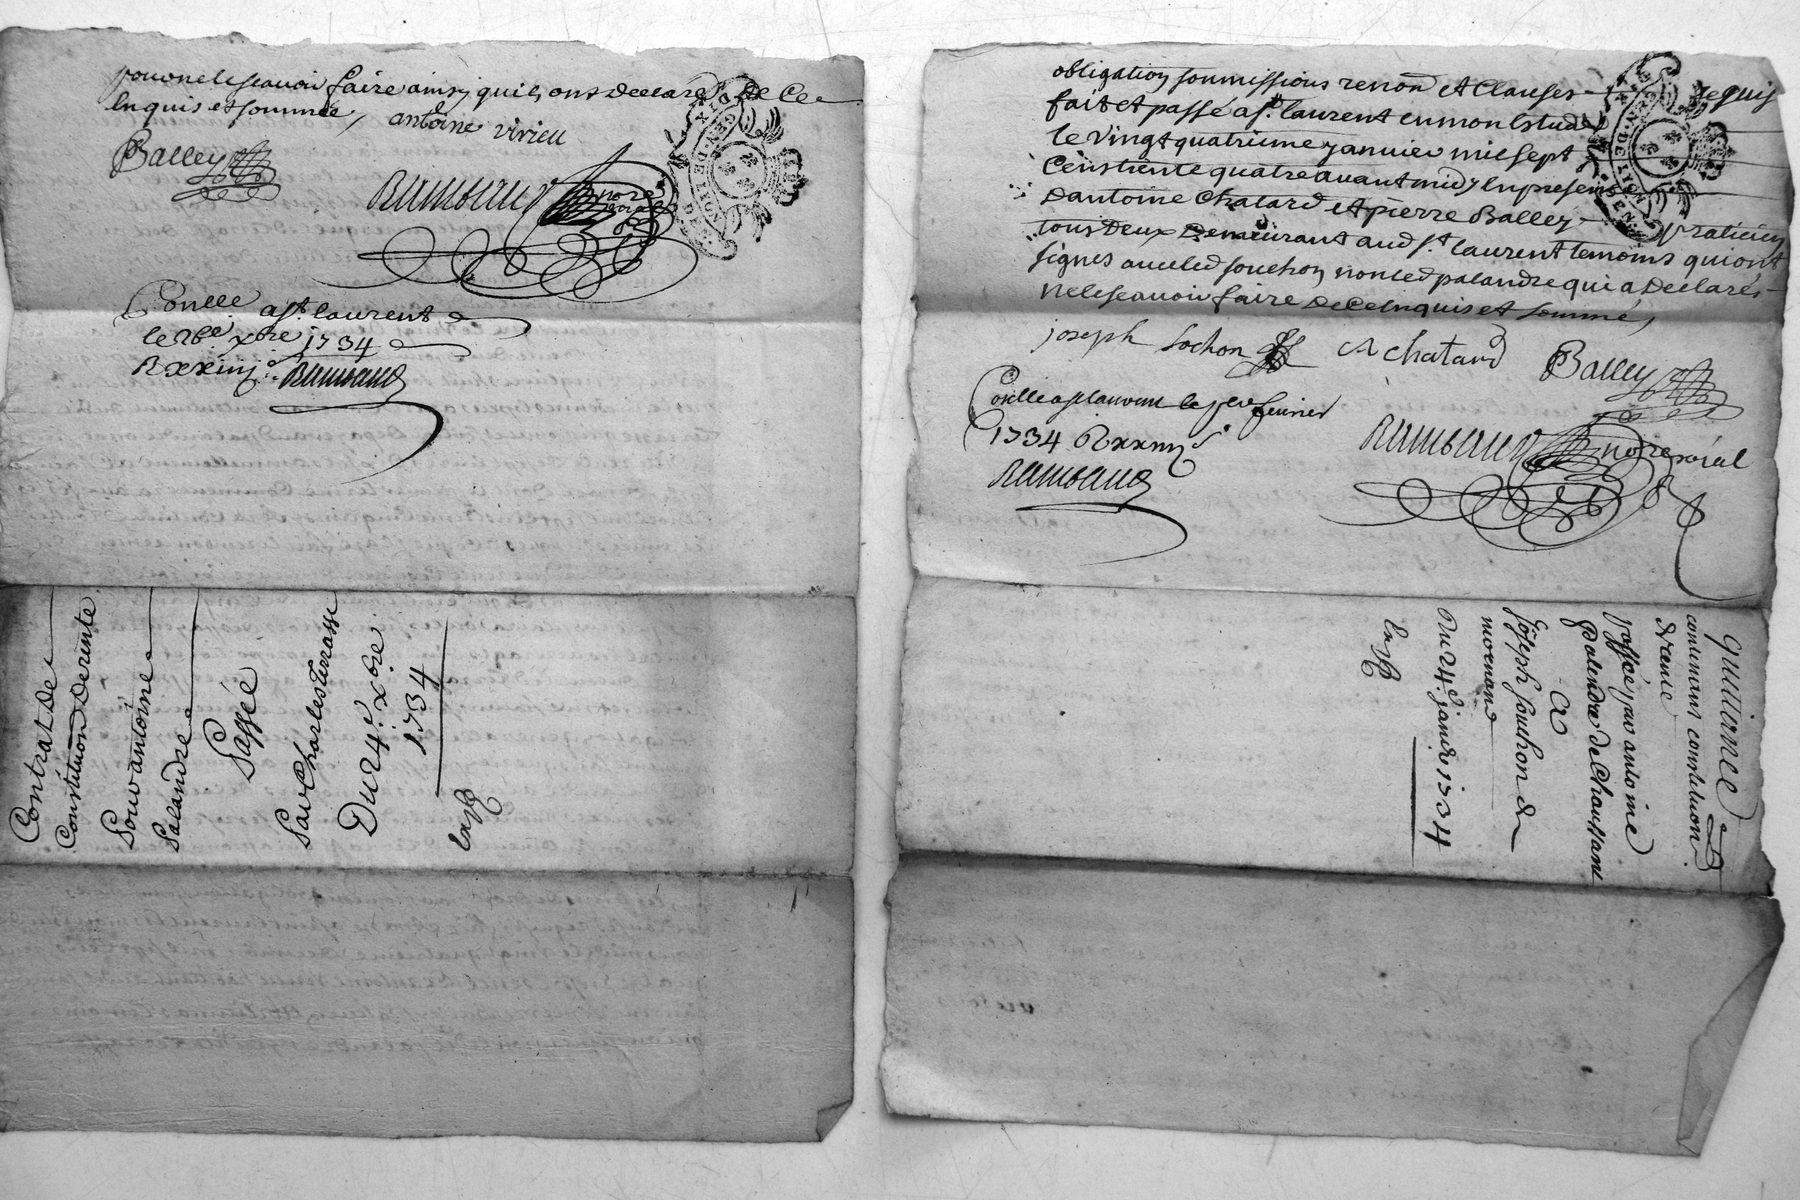 pour ne le scavoir faire ainsy quils ont declarés De ce
Enquis et sommée, antoine vivieu
Balley
Rambaud nore royal
GN. DE LYON
Conllé a st. laurent
le xbre 1734
R xxiiij s. Rambaud
Contrat de
Constitution De rente
Pour antoine
Palandre
Passé
Par Charles terrasse
Du 24e. xbre
1734
Exp
obligation soumissions renon et Clauses requis
fait et passé a st. laurent en mon Estude
le vingt quatrieme janvier mil sept
Cens trente quatre avant midy En presence
D'antoine Chatard et pierre Balley praticien
tous deux Demeurant aud st. laurent temoins qui ont
signés avec led souchon non led palandre qui a Declarés
ne le scavoir faire De ce Enquis et sommé,
joseph Sochon A chatard Balley
Conllé a st laurent le per fevrier
1734 R xxiiij s
Rambaud
Rambaud nore roial
GN. DE LYON
quittance
contenant constitution
de rente
passée par antoine
Palandre de Chaussant
a
Joseph Souchon de
mornand
Du 24e janvr 1734
Exp